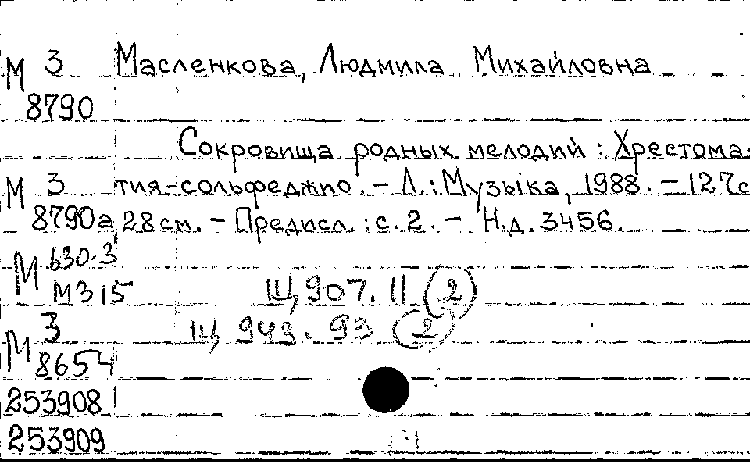 М 3 Масленкова, Людмила Михайловна
8790
Сокровища родных мелодий : Хрестома-
М 3 тия-сольфеджио. - Л. : Музыка, 1988. - 127с
8790а 28см. - Предисл. : с. 2. - Н.д. 3456.
М 630-3
М315 Щ907.11 (2)
М 3 Щ943.93 (2)
8654
253908
253909